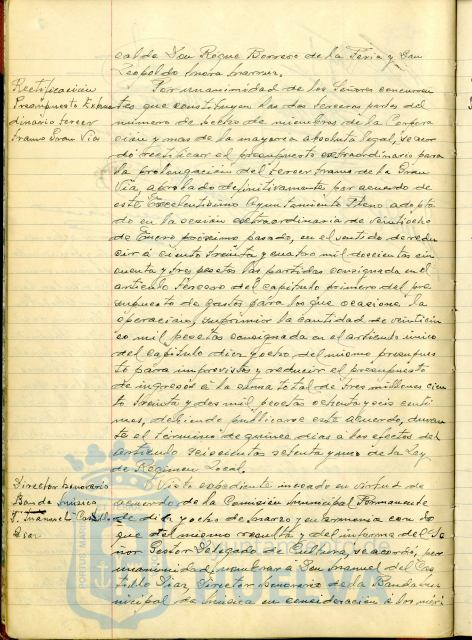 calde Don Roque Borrero de la Feria y Don
Leopoldo Mora
Rectificación
Presupuesto Extraor
dinario tercer
tramo Gran Vía
Por unanimidad de los Señores concurren
tes que constituyen las dos terceras partes del
número de hecho de miembros de la Corpora
ción y mas de la mayoria absoluta legal, se acor
dó rectificar el presupuesto extraordinario para
la prolongación del tercer tramo de la Gran
Vía, aprobado definitivamente por acuerdo de
este Excelentísimo Ayuntamiento Pleno adopta
do en la sesión extraordinaria de veintiocho
de Enero próximo pasado, en el sentido de redu
cir a ciento treinta y cuatro mil doscientas cin
cuenta y tres pesetas las partidas consignada en el
articulo tercero del capítulo primero del pre
supuesto de gastos para los que ocasione la
operación, suprimir la cantidad de veinticin
co mil pesetas consignada en el articulo único
del capítulo diez y ocho del mismo presupues
to para imprevistos y reducir el presupuesto
de ingresos a la suma total de tres millones cien
to treinta y dos mil pesetas ochenta y seis centi
mos, debiendo publicarse este acuerdo, duran
te el término de quince dias a los efectos del
articulo seiscientos setenta y uno de la Ley
de Régimen Local.
Director Honorario
Banda música
D. Manuel Castillo
Díaz
Visto expediente incoado en virtud de
acuerdo de la Comisión Municipal Permanente
de diez y ocho de Marzo y en armonia con lo
que del mismo resulta y del informe del Se
ñor Gestor Delegado de Cultura, se acordó, por
unanimidad, nombrar a Don Manuel del Cas
tillo Díaz Director Honorario de la Banda Mu
nicipal de Música en consideración a los méri
HUELVA